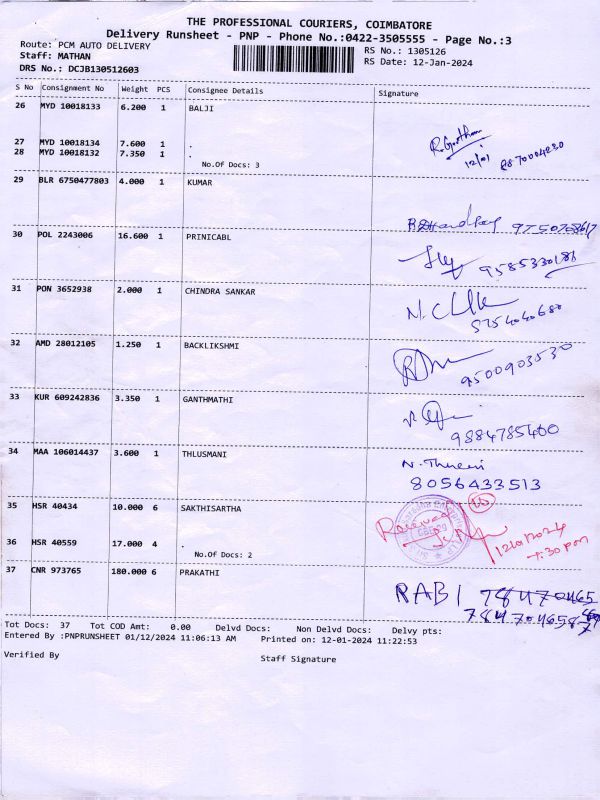 THE PROFESSIONAL COURIERS, COIMBATORE
Delivery Runsheet - PNP - Phone No.:0422-3505555 - Page No.:3
Route: PCM AUTO DELIVERY
RS No.: 1305126
Staff: MATHAN
RS Date: 12-Jan-2024
DRS No.: DCJB130512603
S No Consignment No Weight PCS Consignee Details Signature
26 MYD 10018133 6.200 1 BALJI
27 MYD 10018134 7.600 1 .
28 MYD 10018132 7.350 1 .
No.Of Docs: 3
R.Gowtham
12/01 8870004230
29 BLR 6750477803 4.000 1 KUMAR
9750708617
30 POL 2243006 16.600 1 PRINICABL
9585330181
31 PON 3652938 2.000 1 CHINDRA SANKAR
8754040680
32 AMD 28012105 1.250 1 BACKLIKSHMI
9500903530
33 KUR 609242836 3.350 1 GANTHMATHI
9884785400
34 MAA 106014437 3.600 1 THLUSMANI
8056433513
35 HSR 40434 10.000 6 SAKTHISARTHA
Received 10
36 HSR 40559 17.000 4 .
No.Of Docs: 2
12/01/2024
7.30 pm
37 CNR 973765 180.000 6 PRAKATHI
RABI 78470465
Tot Docs: 37 Tot COD Amt: 0.00 Delvd Docs: Non Delvd Docs: Delvy pts:
Entered By :PNPRUNSHEET 01/12/2024 11:06:13 AM Printed on: 12-01-2024 11:22:53
Verified By
Staff Signature